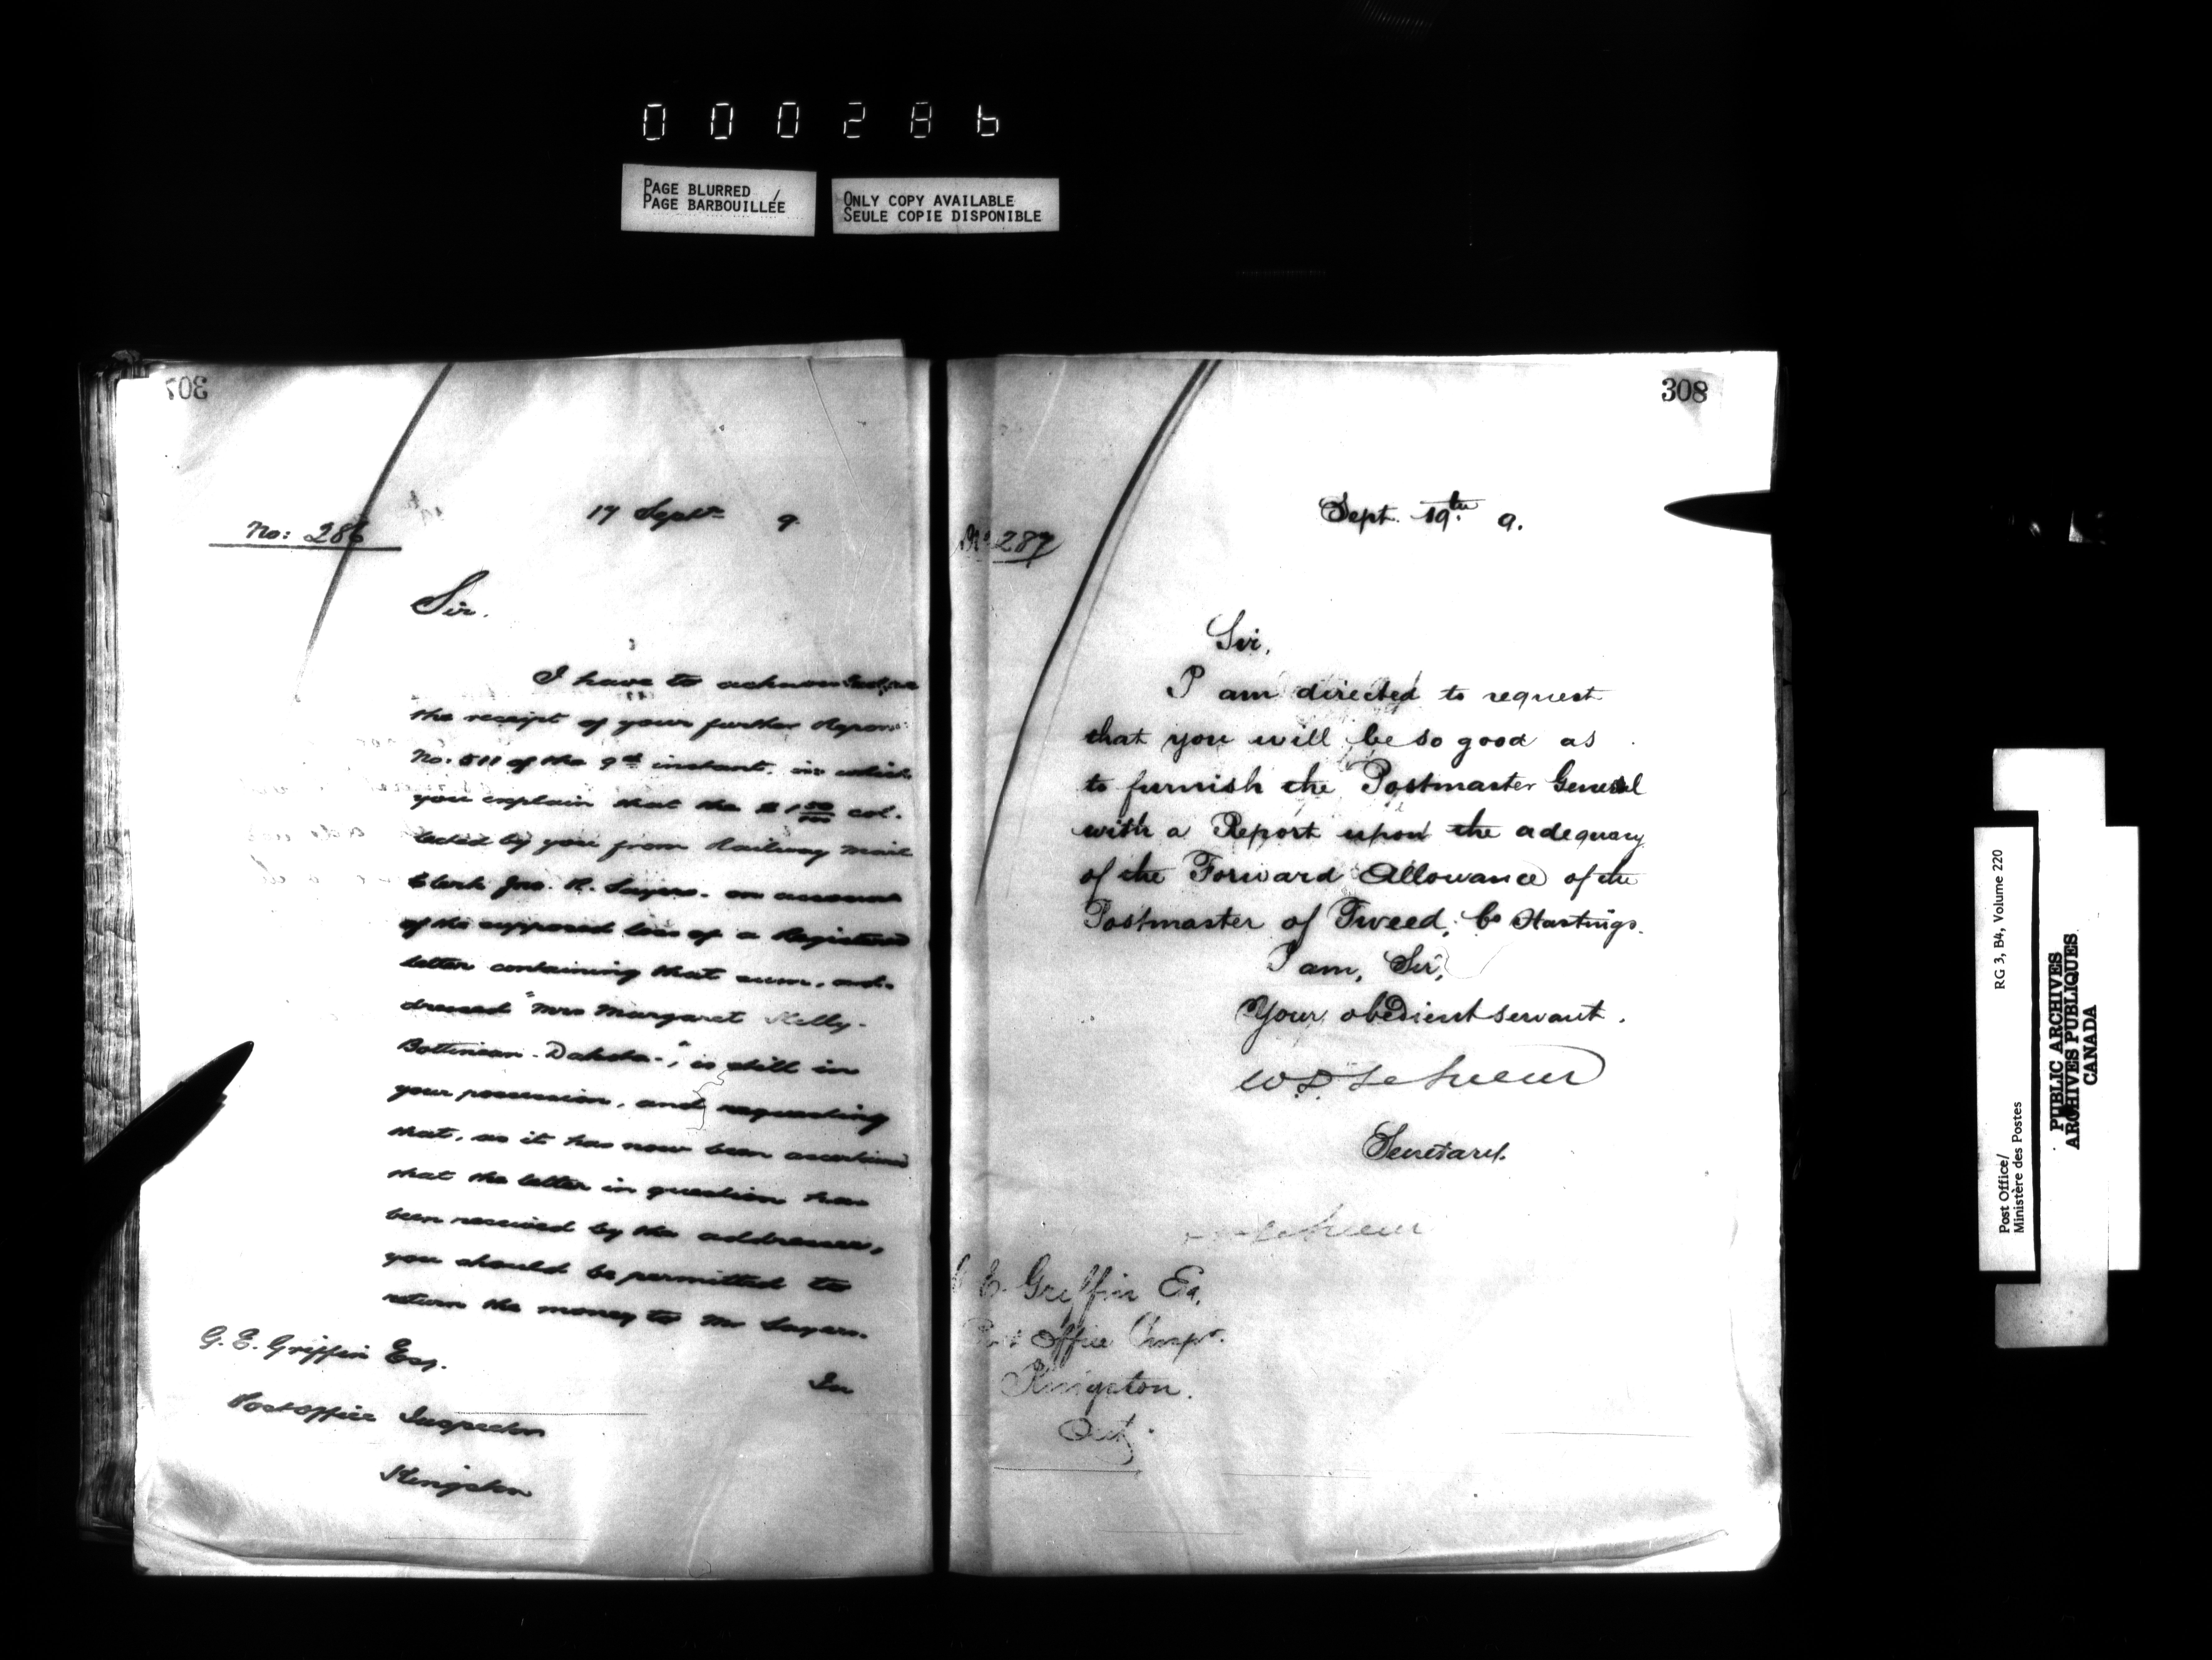 000286
PAGE BLURRED
PAGE BARBOUILLÉE
ONLY COPY AVAILABLE
SEULE COPIE DISPONIBLE
307
No: 286
17 Septr 9
Sir.
I have to acknowledge
the receipt of your further Report
No. 511 of the 9th instant, in which
you explain that the $1 50/100 col-
lected by you from Railway Mail
Clerk Jno. R. Sayers. on account
of the supposed loss of a Registered
letter containing that sum, ad-
dressed "Mrs Margaret Kelly-
Bottineau - Dakota -", is still in
your possession, and requesting
that, as it has now been ascertained
that the letter in question has
been received by the addressee,
you should be permitted to
return the money to Mr Sayers.
In
G. E. Griffin Esq.
Post Office Inspector
Kingston
308
No 287
Sept. 19th 9.
Sir,
I am directed to request
that you will be so good as
to furnish the Postmaster General
with a Report upon the adequacy
of the Forward Allowance of the
Postmaster of Tweed, Co Hastings.
I am, Sir,
Your obedient servant.
W D LeSueur
Secretary.
LeSueur
E. Griffin Esq.
Post Office Inspr.
Kingston.
Ont.
Post Office/
Ministère des Postes
RG 3, B4, Volume 220
PUBLIC ARCHIVES
ARCHIVES PUBLIQUES
CANADA